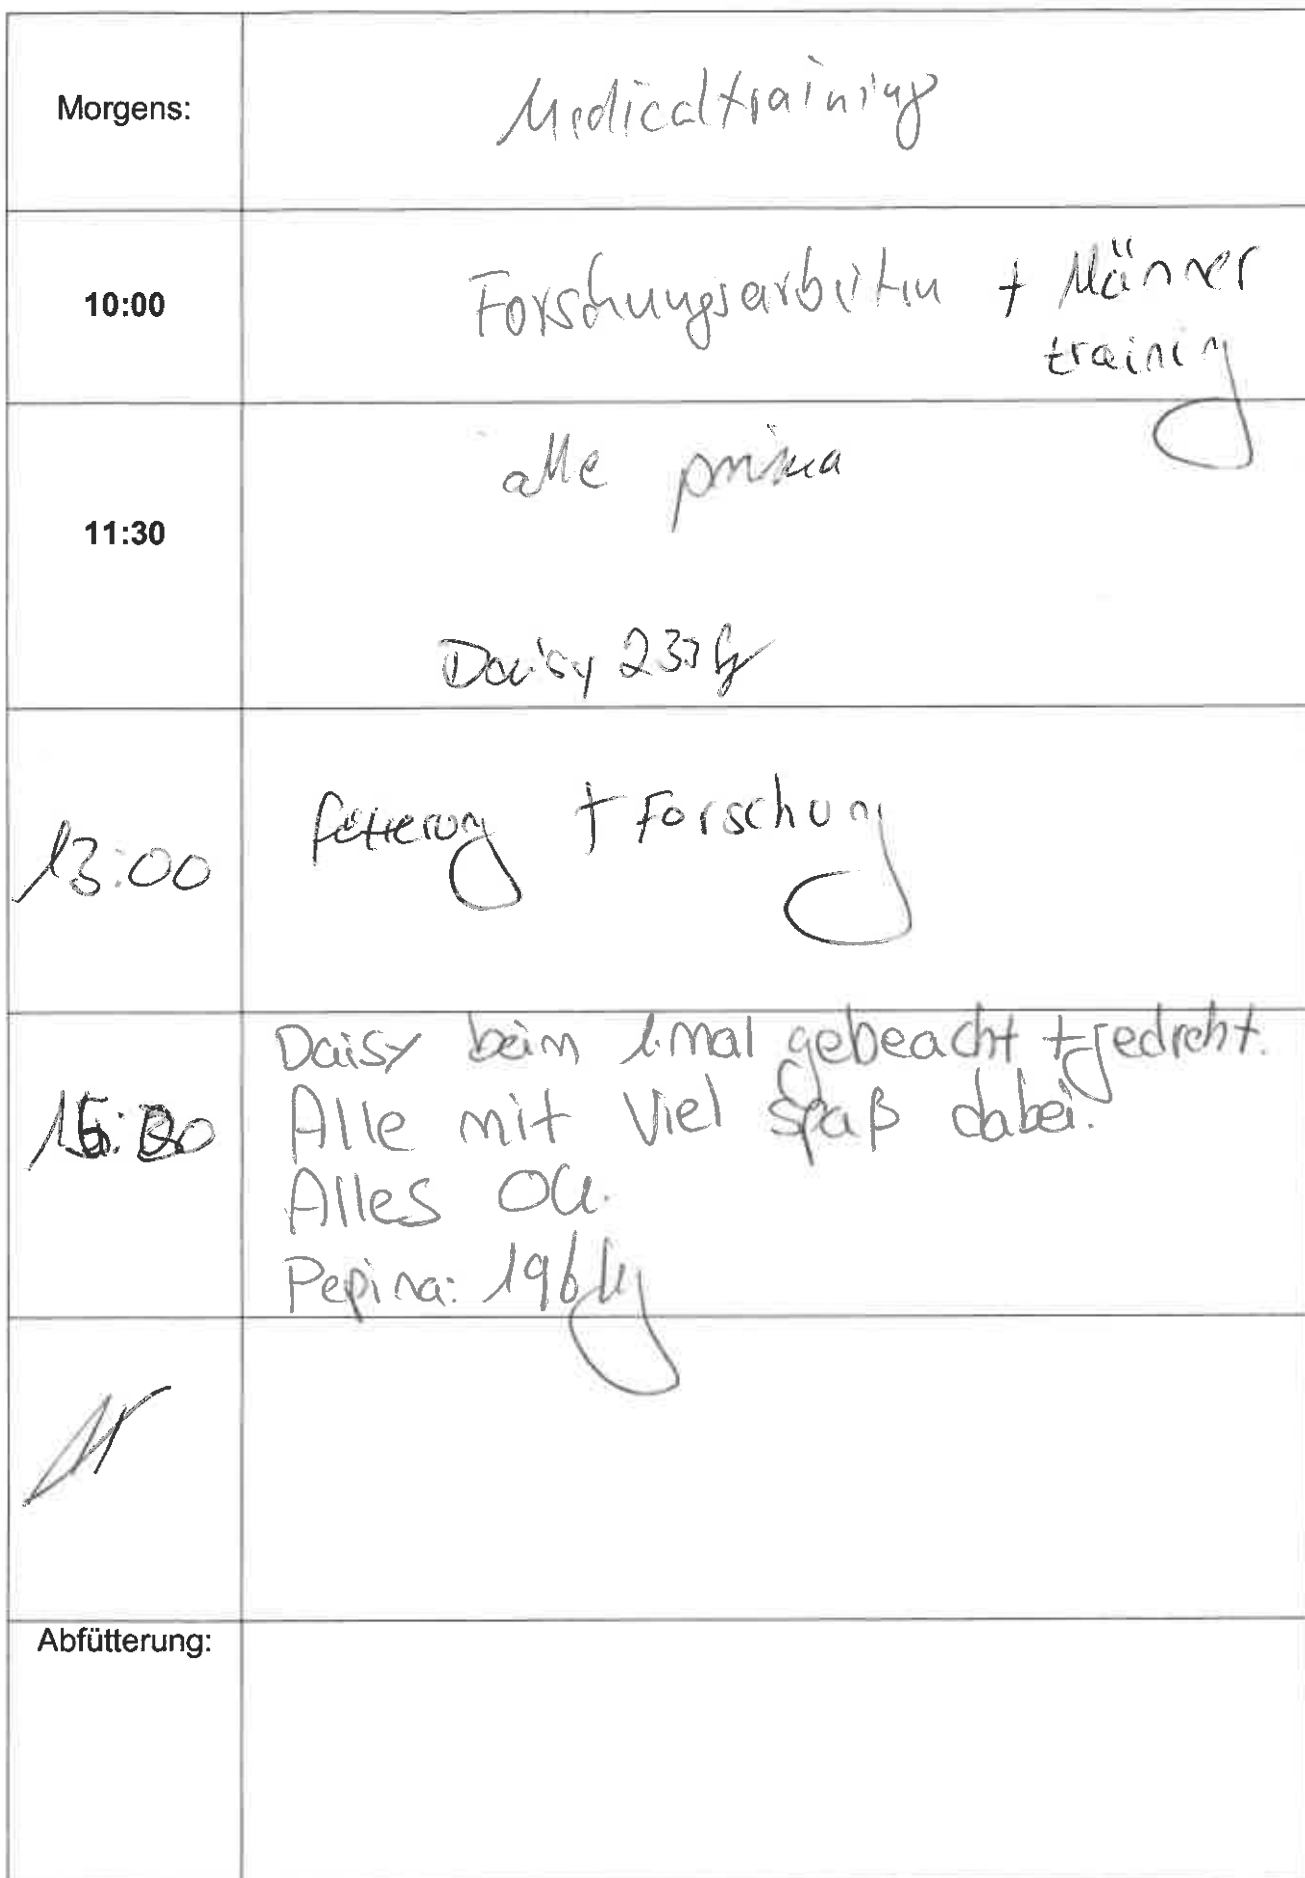 Morgens:
Medicaltraining
10:00
Forschungsarbeiten + Männer
training
11:30
alle prima
Daisy kg
13:00
+ Forschung
Daisy beim 1.mal gebeacht + gedreht.
Alle mit viel Spaß dabei.
Alles OK.
Pepina: 196 kg
Abfütterung: